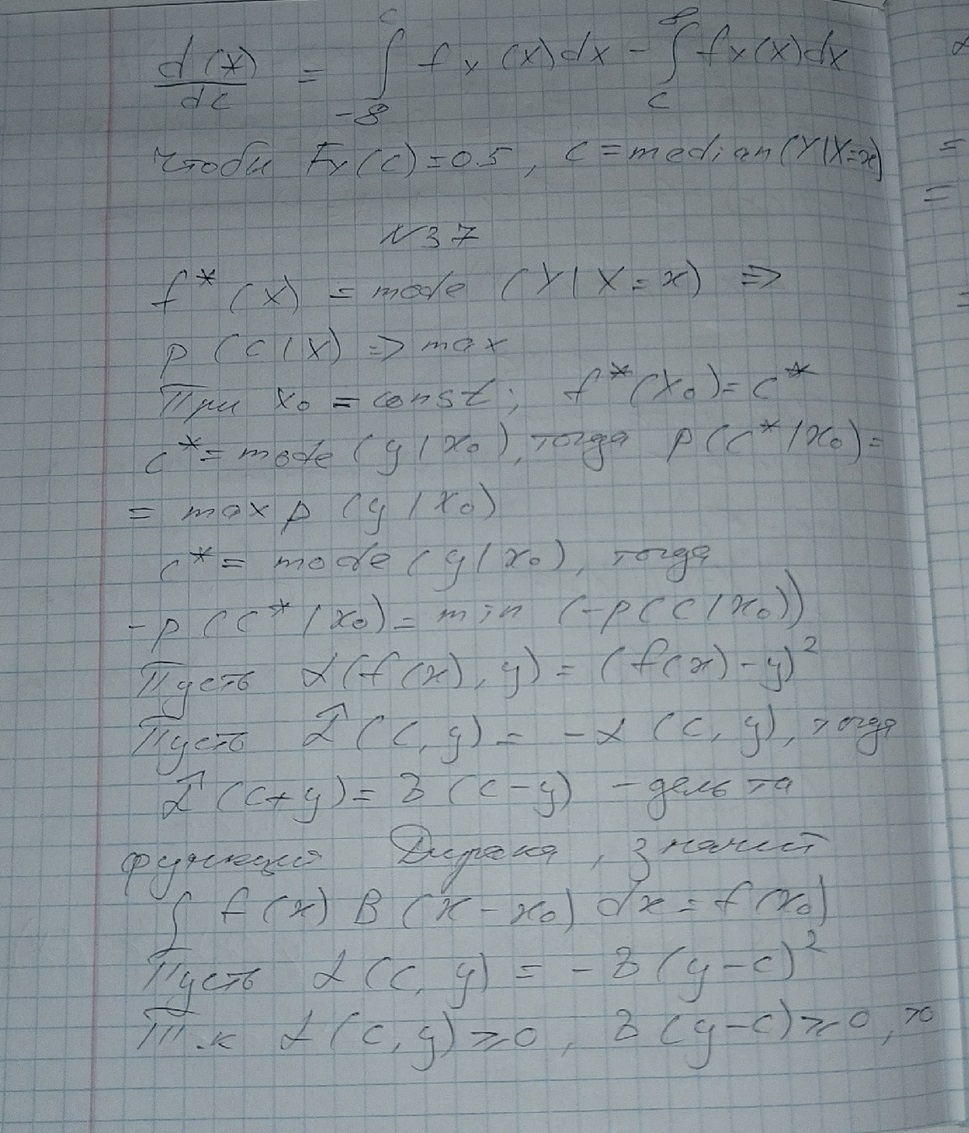 d(*)/dc = ∫_{-∞}^{c} f_x(x)dx - ∫_{c}^{∞} f_x(x)dx
Чтобы F_Y(c)=0.5, c=median(Y|X=x)
N37
f*(x) = mode (Y|X=x) =>
p(c|x) => max
При x₀ = const; f*(x₀)=c*
c*=mode(y|x₀), тогда p(c*|x₀)=
= max p (y|x₀)
c* = mode (y|x₀), тогда
-p(c*|x₀) = min (-p(c|x₀))
Пусть L(f(x), y) = (f(x)-y)²
Пусть L̂(c, y) = -L(c, y), тогда
L̂(c+y) = B(c-y) - дельта
функция Дирака, значит
∫ f(x) B(x-x₀) dx = f(x₀)
Пусть L(c, y) = -B(y-c)²
Т.к L(c, y) ⩾ 0, B(y-c) ⩾ 0, то